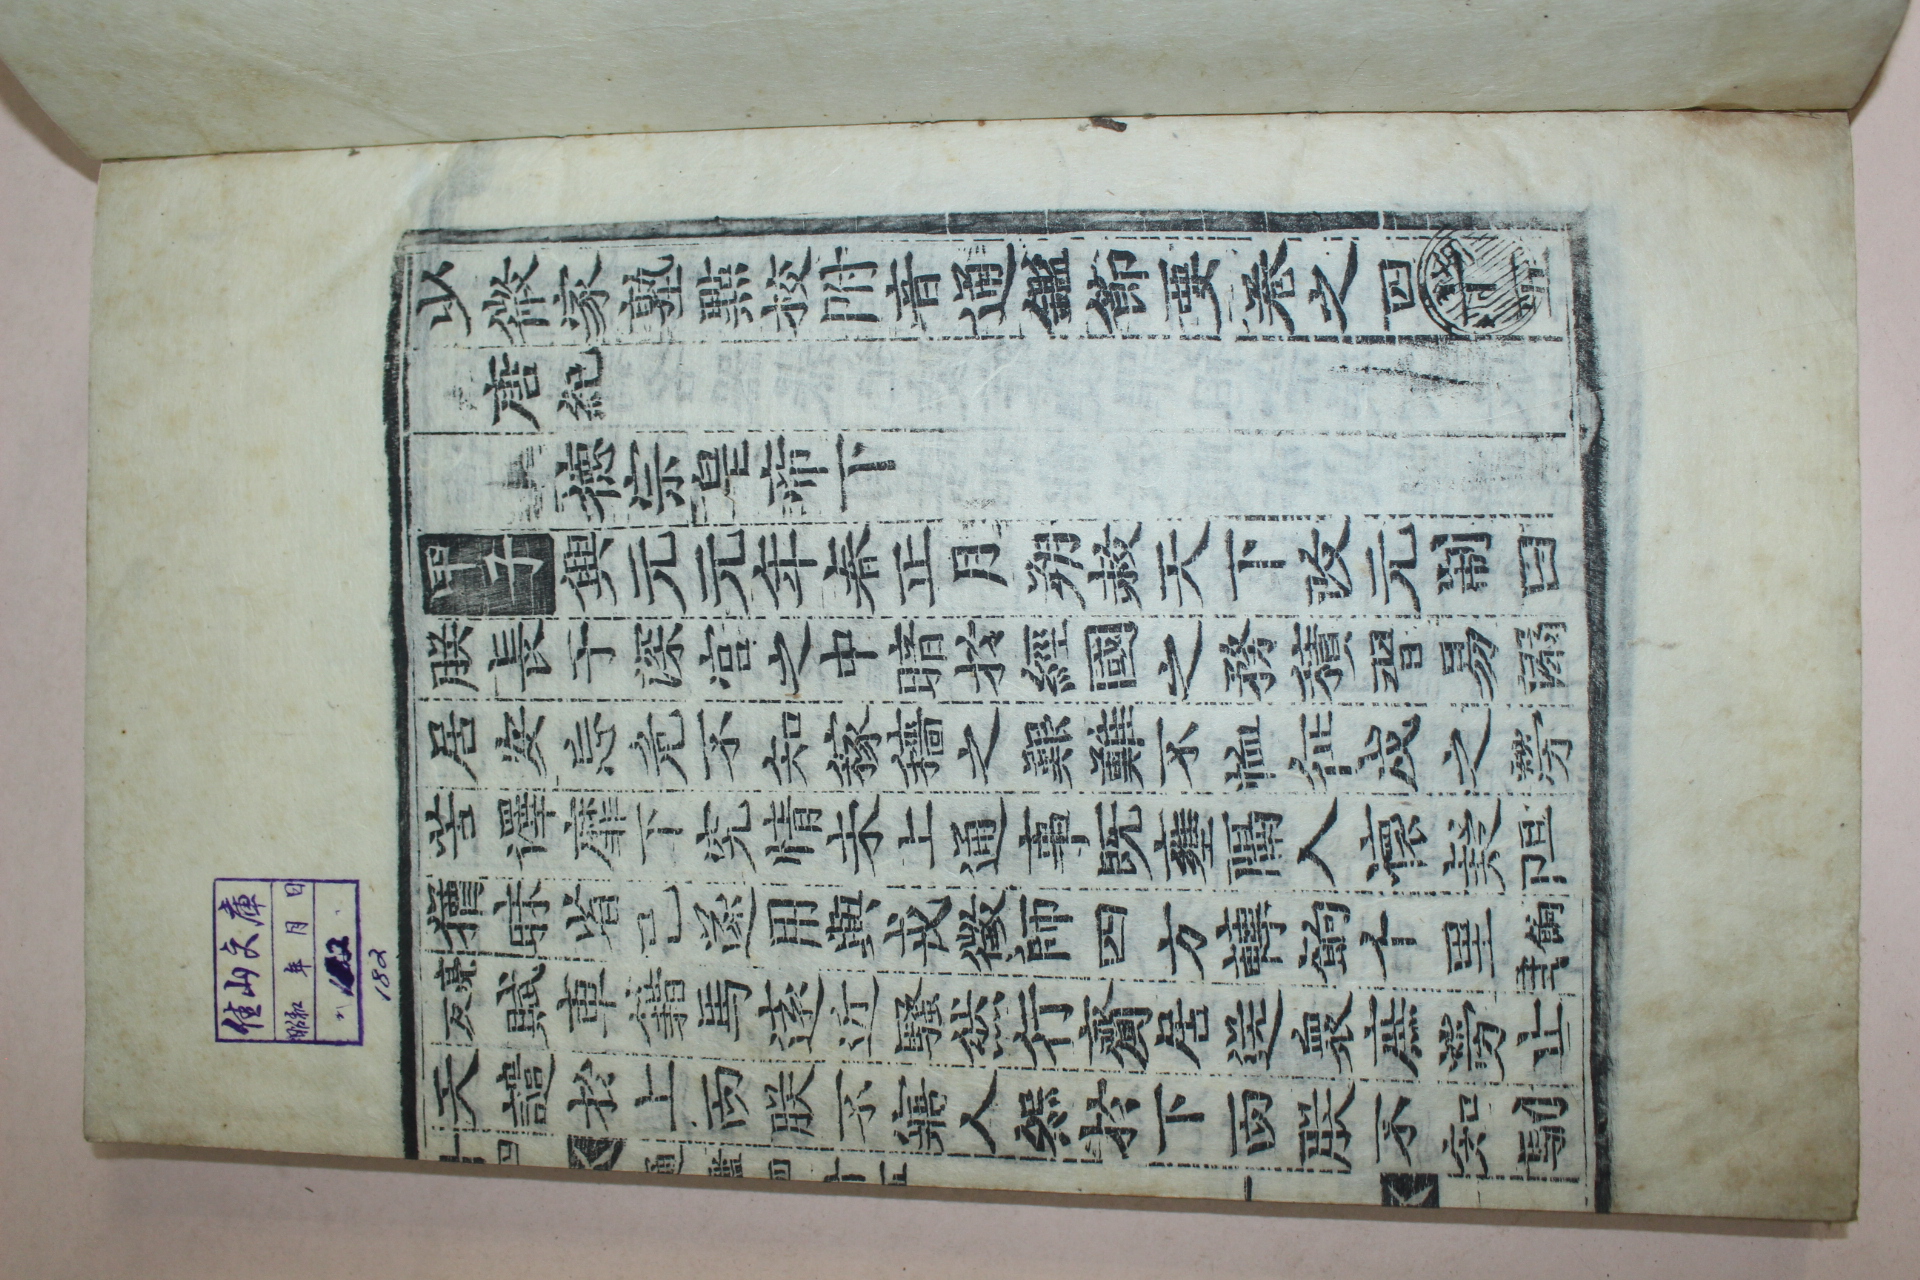 少微家塾點校附音通鑑節要卷之四十五
唐紀
德宗皇帝下
甲子興元元年春正月朔赦天下改元制曰
朕長于深宮之中暗於經國之務積習易溺
居安忘危不知稼穡之艱難不恤征戍之勞
苦澤靡下究情未上通事旣壅隔人懷疑阻
猶昧省己遂用興戎徵師四方轉餉千里
賦車籍馬遠近騷然行齎居送衆庶勞止
天譴於上而朕不寤人怨於下而朕不知馴
通鑑四十五
佳山文庫
昭和 年 月 日
182